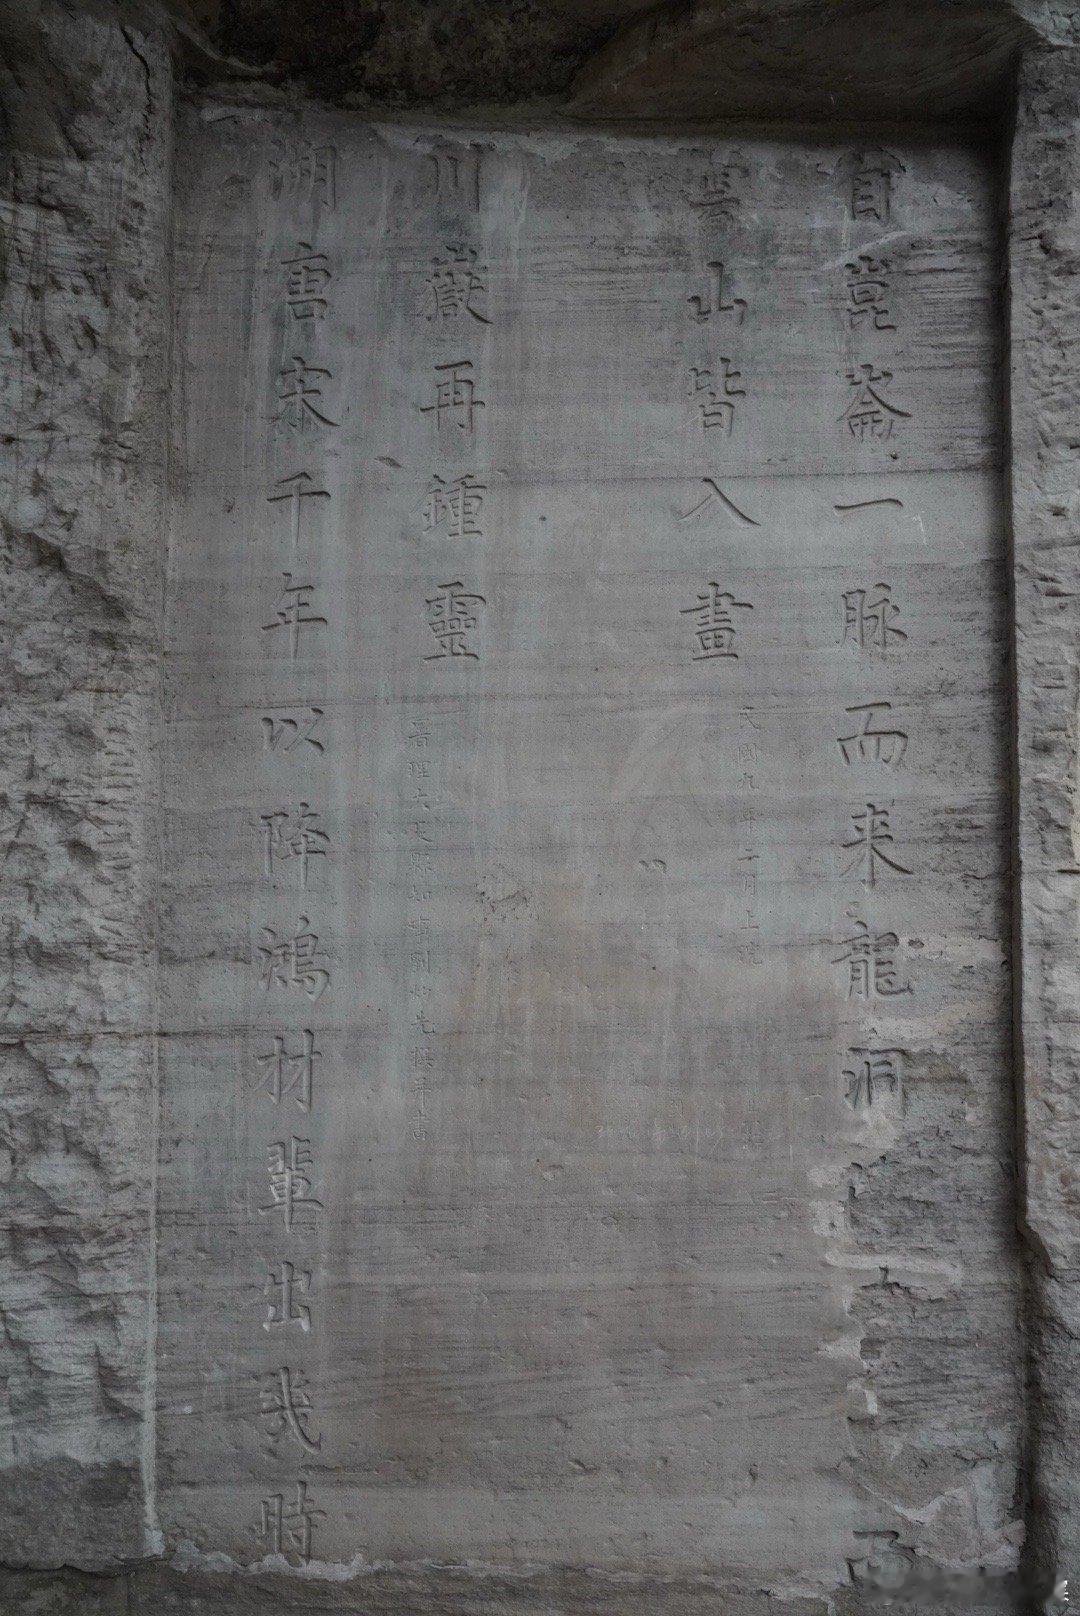 自崑崙一脉而来龍洞
山皆入畫
民國九年二月上浣
川嶽再鍾靈
署理大足縣知事劉先撰并書
溯唐宋千年以降鴻材輩出幾時